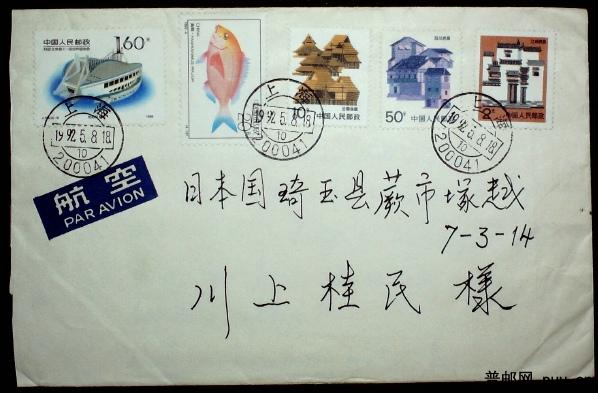 中国人民邮政
160分
10分
中国人民邮政
50分
中国人民邮政
2分
中国人民邮政
上海
1992.5.8.18
10
200041
上海
1992.5.8.18
10
200041
上海
1992.5.8.18
10
200041
航空
PAR AVION
日本国琦玉县蕨市塚越
7-3-14
川上桂民様